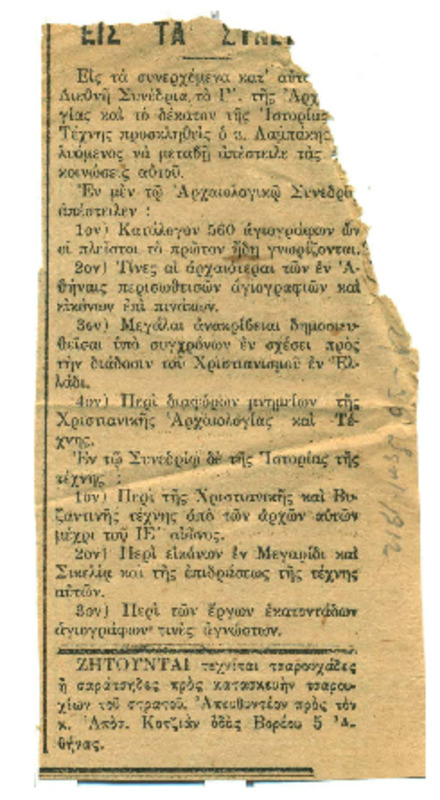 ΕΙΣ ΤΑ ΣΥΝΕ
Εἰς τὰ συνερχόμενα κατ' αὐτὰ
Διεθνῆ Συνέδρια, τὸ Γ'. τῆς Ἀρχ
γίας καὶ τὸ δέκατον τῆς Ἱστορίας
Τέχνης προσκληθεὶς ὁ κ. Λαμπάκης,
λυόμενος νὰ μεταβῇ ἀπέστειλε τὰς
κοινώσεις αὐτοῦ.
Ἐν μὲν τῷ Ἀρχαιολογικῷ Συνεδρί
ἀπέστειλεν :
1ον) Κατάλογον 560 ἁγιογράφων ὧν
οἱ πλεῖστοι τὸ πρῶτον ἤδη γνωρίζονται.
2ον) Τίνες αἱ ἀρχαιότεραι τῶν ἐν Ἀ-
θήναις περισωθεισῶν ἁγιογραφιῶν καὶ
εἰκόνων ἐπὶ πινάκων.
3ον) Μεγάλαι ἀνακρίβειαι δημοσιευ-
θεῖσαι ὑπὸ συγχρόνων ἐν σχέσει πρὸς
τὴν διάδοσιν τοῦ Χριστιανισμοῦ ἐν Ἑλ-
λάδι.
4ον) Περὶ διαφόρων μνημείων τῆς
Χριστιανικῆς Ἀρχαιολογίας καὶ Τέ-
χνης.
Ἐν τῷ Συνεδρίῳ δὲ τῆς Ἱστορίας τῆς
τέχνης :
1ον) Περὶ τῆς Χριστιανικῆς καὶ Βυ-
ζαντινῆς τέχνης ἀπὸ τῶν ἀρχῶν αὐτῶν
μέχρι τοῦ ΙΕ' αἰῶνος.
2ον) Περὶ εἰκόνων ἐν Μεγαρίδι καὶ
Σικελίᾳ καὶ τῆς ἐπιδράσεως τῆς τέχνης
αὐτῶν.
3ον) Περὶ τῶν ἔργων ἑκατοντάδων
ἁγιογράφων τινὲς ἀγνώστων.
ΖΗΤΟΥΝΤΑΙ τεχνῖται τσαρουχάδες
ἢ σαράτσηδες πρὸς κατασκευὴν τσαρου-
χίων τοῦ στρατοῦ. Ἀπευθυντέον πρὸς τὸν
κ. Ἀπόστ. Κοτζιὰν ὁδὸς Βορέου 5 Ἀ-
θήνας.
1912